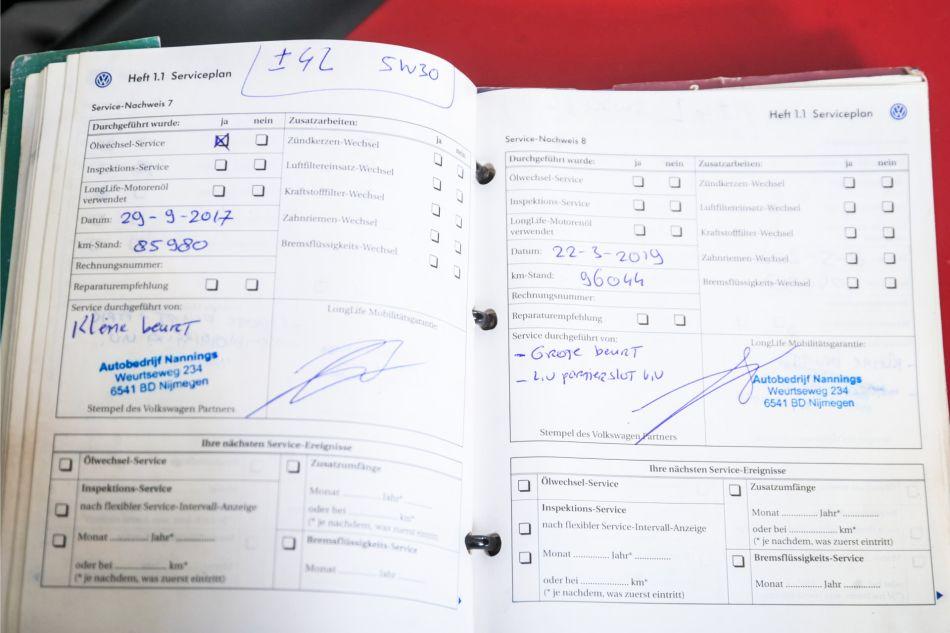 Heft 1.1 Serviceplan
± 4L 5W30
Service-Nachweis 7
Durchgeführt wurde: ja nein
Ölwechsel-Service
Inspektions-Service
LongLife-Motorenöl
verwendet
Datum: 29-9-2017
km-Stand: 85980
Rechnungsnummer:
Reparaturempfehlung
Zusatzarbeiten: ja nein
Zündkerzen-Wechsel
Luftfiltereinsatz-Wechsel
Kraftstofffilter-Wechsel
Zahnriemen-Wechsel
Bremsflüssigkeits-Wechsel
Service durchgeführt von:
Kleine beurt
Autobedrijf Nannings
Weurtseweg 234
6541 BD Nijmegen
Stempel des Volkswagen Partners
LongLife Mobilitätsgarantie:
Ihre nächsten Service-Ereignisse
Ölwechsel-Service
Inspektions-Service
nach flexibler Service-Intervall-Anzeige
Monat ............ Jahr* ............
oder bei ............ km*
(* je nachdem, was zuerst eintritt)
Zusatzumfänge
Monat ............ Jahr* ............
oder bei ............ km*
(* je nachdem, was zuerst eintritt)
Bremsflüssigkeits-Service
Monat ............ Jahr ............
Heft 1.1 Serviceplan
Service-Nachweis 8
Durchgeführt wurde: ja nein
Ölwechsel-Service
Inspektions-Service
LongLife-Motorenöl
verwendet
Datum: 22-3-2019
km-Stand: 96044
Rechnungsnummer:
Reparaturempfehlung
Zusatzarbeiten: ja nein
Zündkerzen-Wechsel
Luftfiltereinsatz-Wechsel
Kraftstofffilter-Wechsel
Zahnriemen-Wechsel
Bremsflüssigkeits-Wechsel
Service durchgeführt von:
- Grote beurt
- L.V portierslot
Stempel des Volkswagen Partners
LongLife Mobilitätsgarantie:
Autobedrijf Nannings
Weurtseweg 234
6541 BD Nijmegen
Ihre nächsten Service-Ereignisse
Ölwechsel-Service
Inspektions-Service
nach flexibler Service-Intervall-Anzeige
Monat ............ Jahr* ............
oder bei ............ km*
(* je nachdem, was zuerst eintritt)
Zusatzumfänge
Monat ............ Jahr* ............
oder bei ............ km*
(* je nachdem, was zuerst eintritt)
Bremsflüssigkeits-Service
Monat ............ Jahr ............